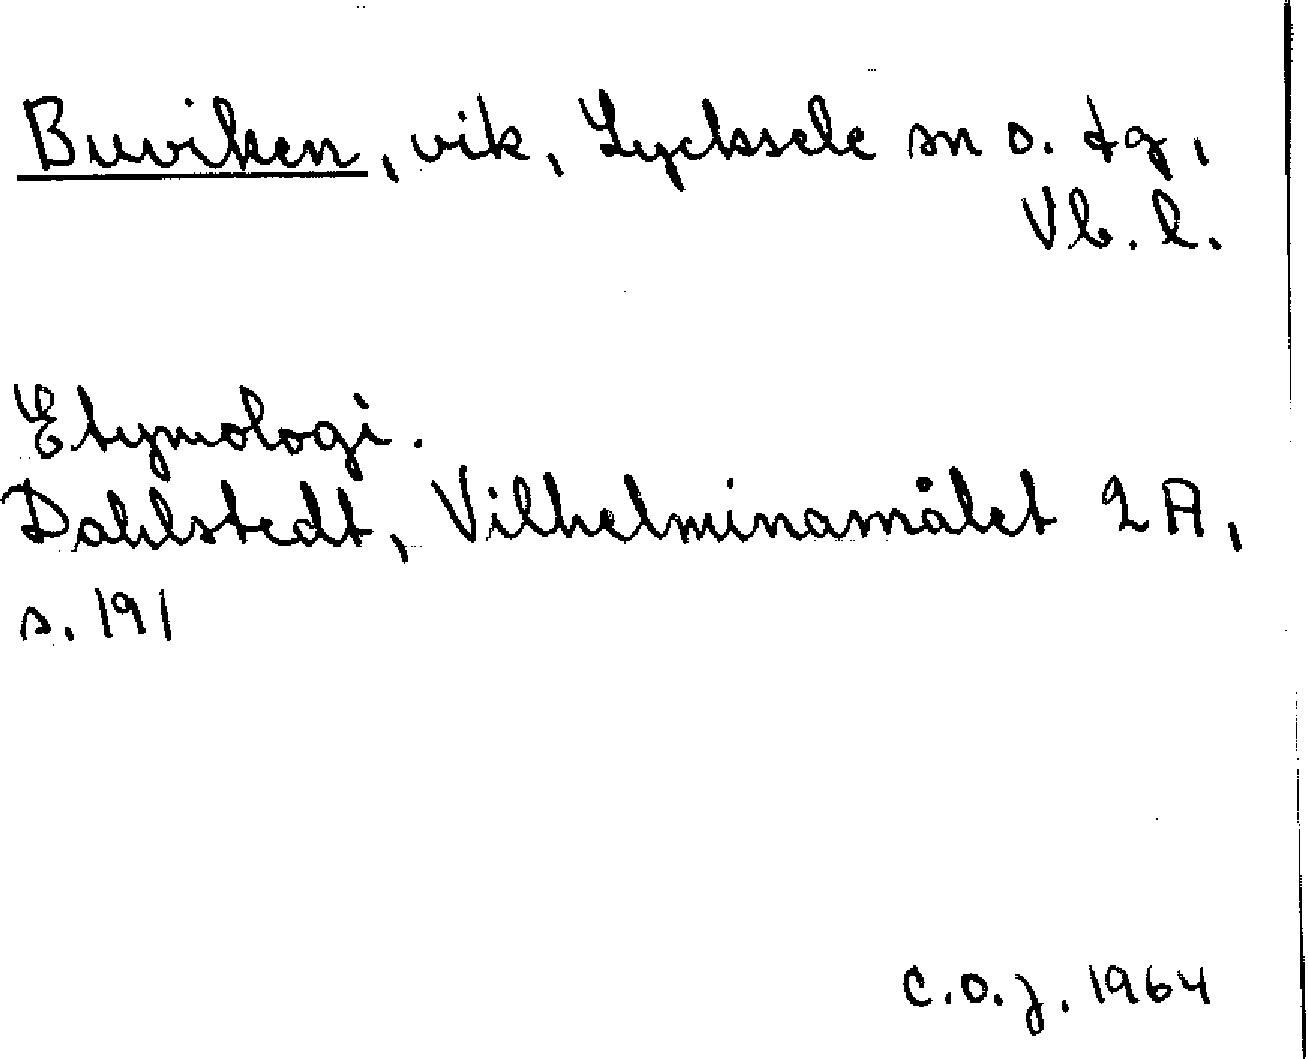 Buviken, vik, Lycksele sn o. tg,
Vb. l.
Etymologi.
Dahlstedt, Vilhelminamålet 2A,
s. 191
C.O.J. 1964